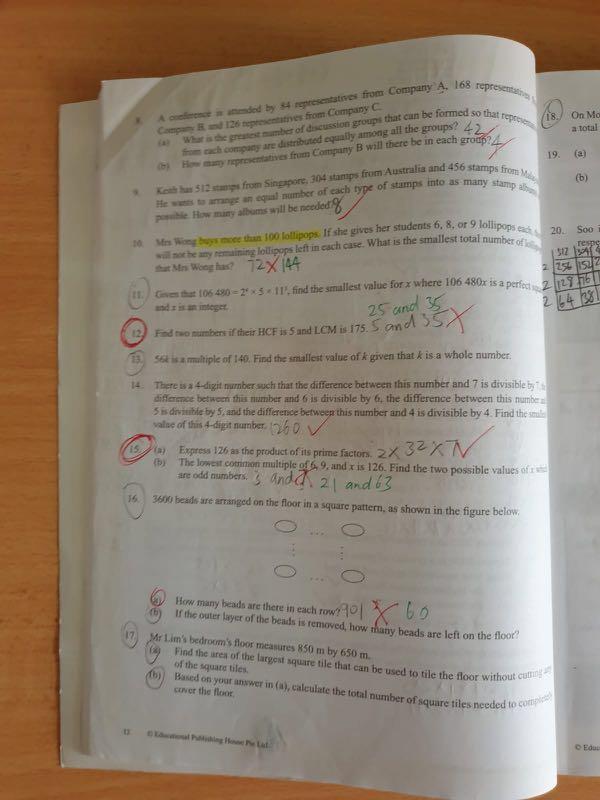 8. A conference is attended by 84 representatives from Company A, 168 representatives
Company B, and 126 representatives from Company C.
(a) What is the greatest number of discussion groups that can be formed so that
from each company are distributed equally among all the groups? 42
(b) How many representatives from Company B will there be in each group? 4
9. Keith has 512 stamps from Singapore, 304 stamps from Australia and 456 stamps from
He wants to arrange an equal number of each type of stamps into as many stamp
possible. How many albums will be needed? 8
10. Mrs Wong buys more than 100 lollipops. If she gives her students 6, 8, or 9 lollipops each,
will not be any remaining lollipops left in each case. What is the smallest total number of
that Mrs Wong has? 72 144
11. Given that 106 480 = 2⁴ × 5 × 11³, find the smallest value for x where 106 480x is a perfect
and x is an integer.
25 and 35
12. Find two numbers if their HCF is 5 and LCM is 175. 5 and 35
13. 56k is a multiple of 140. Find the smallest value of k given that k is a whole number.
14. There is a 4-digit number such that the difference between this number and 7 is divisible by 7,
difference between this number and 6 is divisible by 6, the difference between this number
5 is divisible by 5, and the difference between this number and 4 is divisible by 4. Find the
value of this 4-digit number. 1260
15. (a) Express 126 as the product of its prime factors. 2 × 32 × 7
(b) The lowest common multiple of 6, 9, and x is 126. Find the two possible values of x
are odd numbers. 3 and 21 and 63
16. 3600 beads are arranged on the floor in a square pattern, as shown in the figure below.
(a) How many beads are there in each row? 901 60
(b) If the outer layer of the beads is removed, how many beads are left on the floor?
17. Mr Lim's bedroom's floor measures 850 m by 650 m.
(a) Find the area of the largest square tile that can be used to tile the floor without cutting any
of the square tiles.
(b) Based on your answer in (a), calculate the total number of square tiles needed to completely
cover the floor.
12 © Educational Publishing House Pte Ltd
18. On Mo
a total
19. (a)
(b)
20. Soo
respe
512 304
2 256 152
2 128 76
2 64 38
© Edu